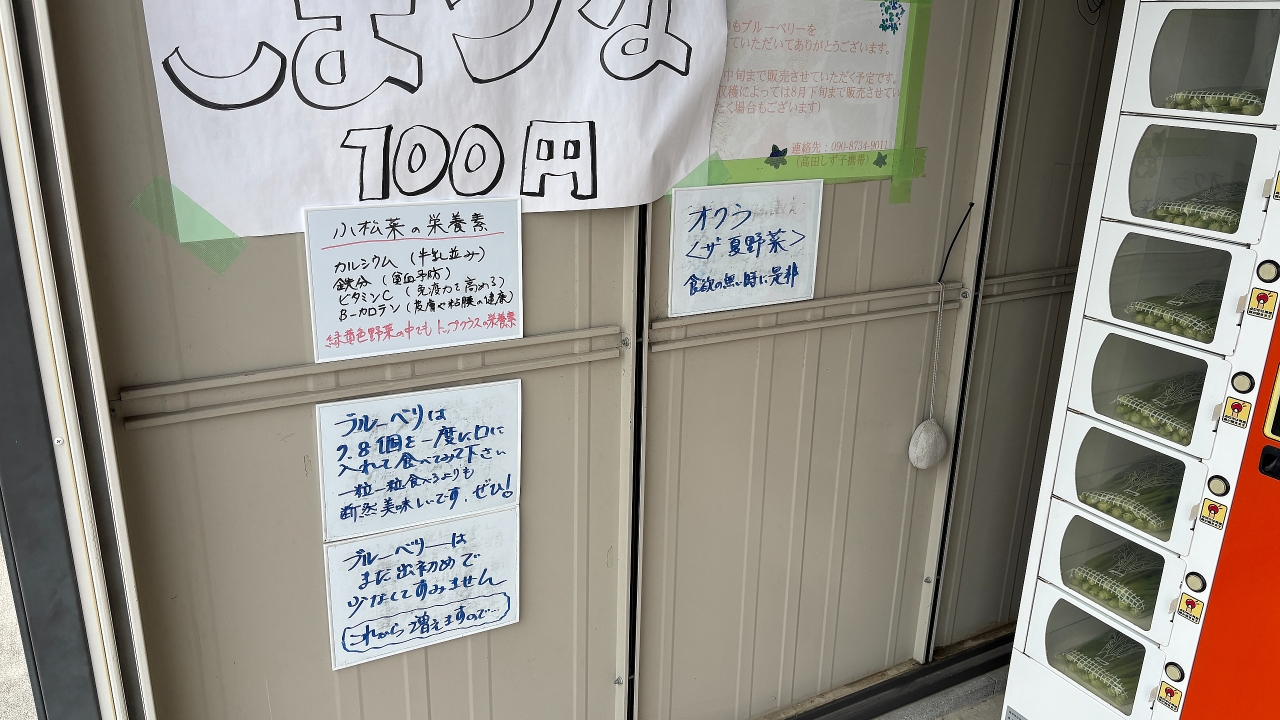 こまつな
100円
もブルーベリーを
ていただいてありがとうございます。
中旬まで販売させていただく予定です。
穫によっては8月下旬まで販売させてい
く場合もございます)
連絡先:090-8734-9011
(高田しず子携帯)
小松菜の栄養素
カルシウム(牛乳並み)
鉄分(貧血予防)
ビタミンC(免疫力を高める)
β-カロテン(皮膚や粘膜の健康)
緑黄色野菜の中でもトップクラスの栄養素
オクラ
<ザ夏野菜>
食欲の無い時に是非
ブルーベリは
7.8個を一度に口に
入れて食べてみて下さい
一粒一粒食べるよりも
断然美味しいです。ぜひ!
ブルーベリーは
まだ出初めで
少なくてすみません
これから増えますので…